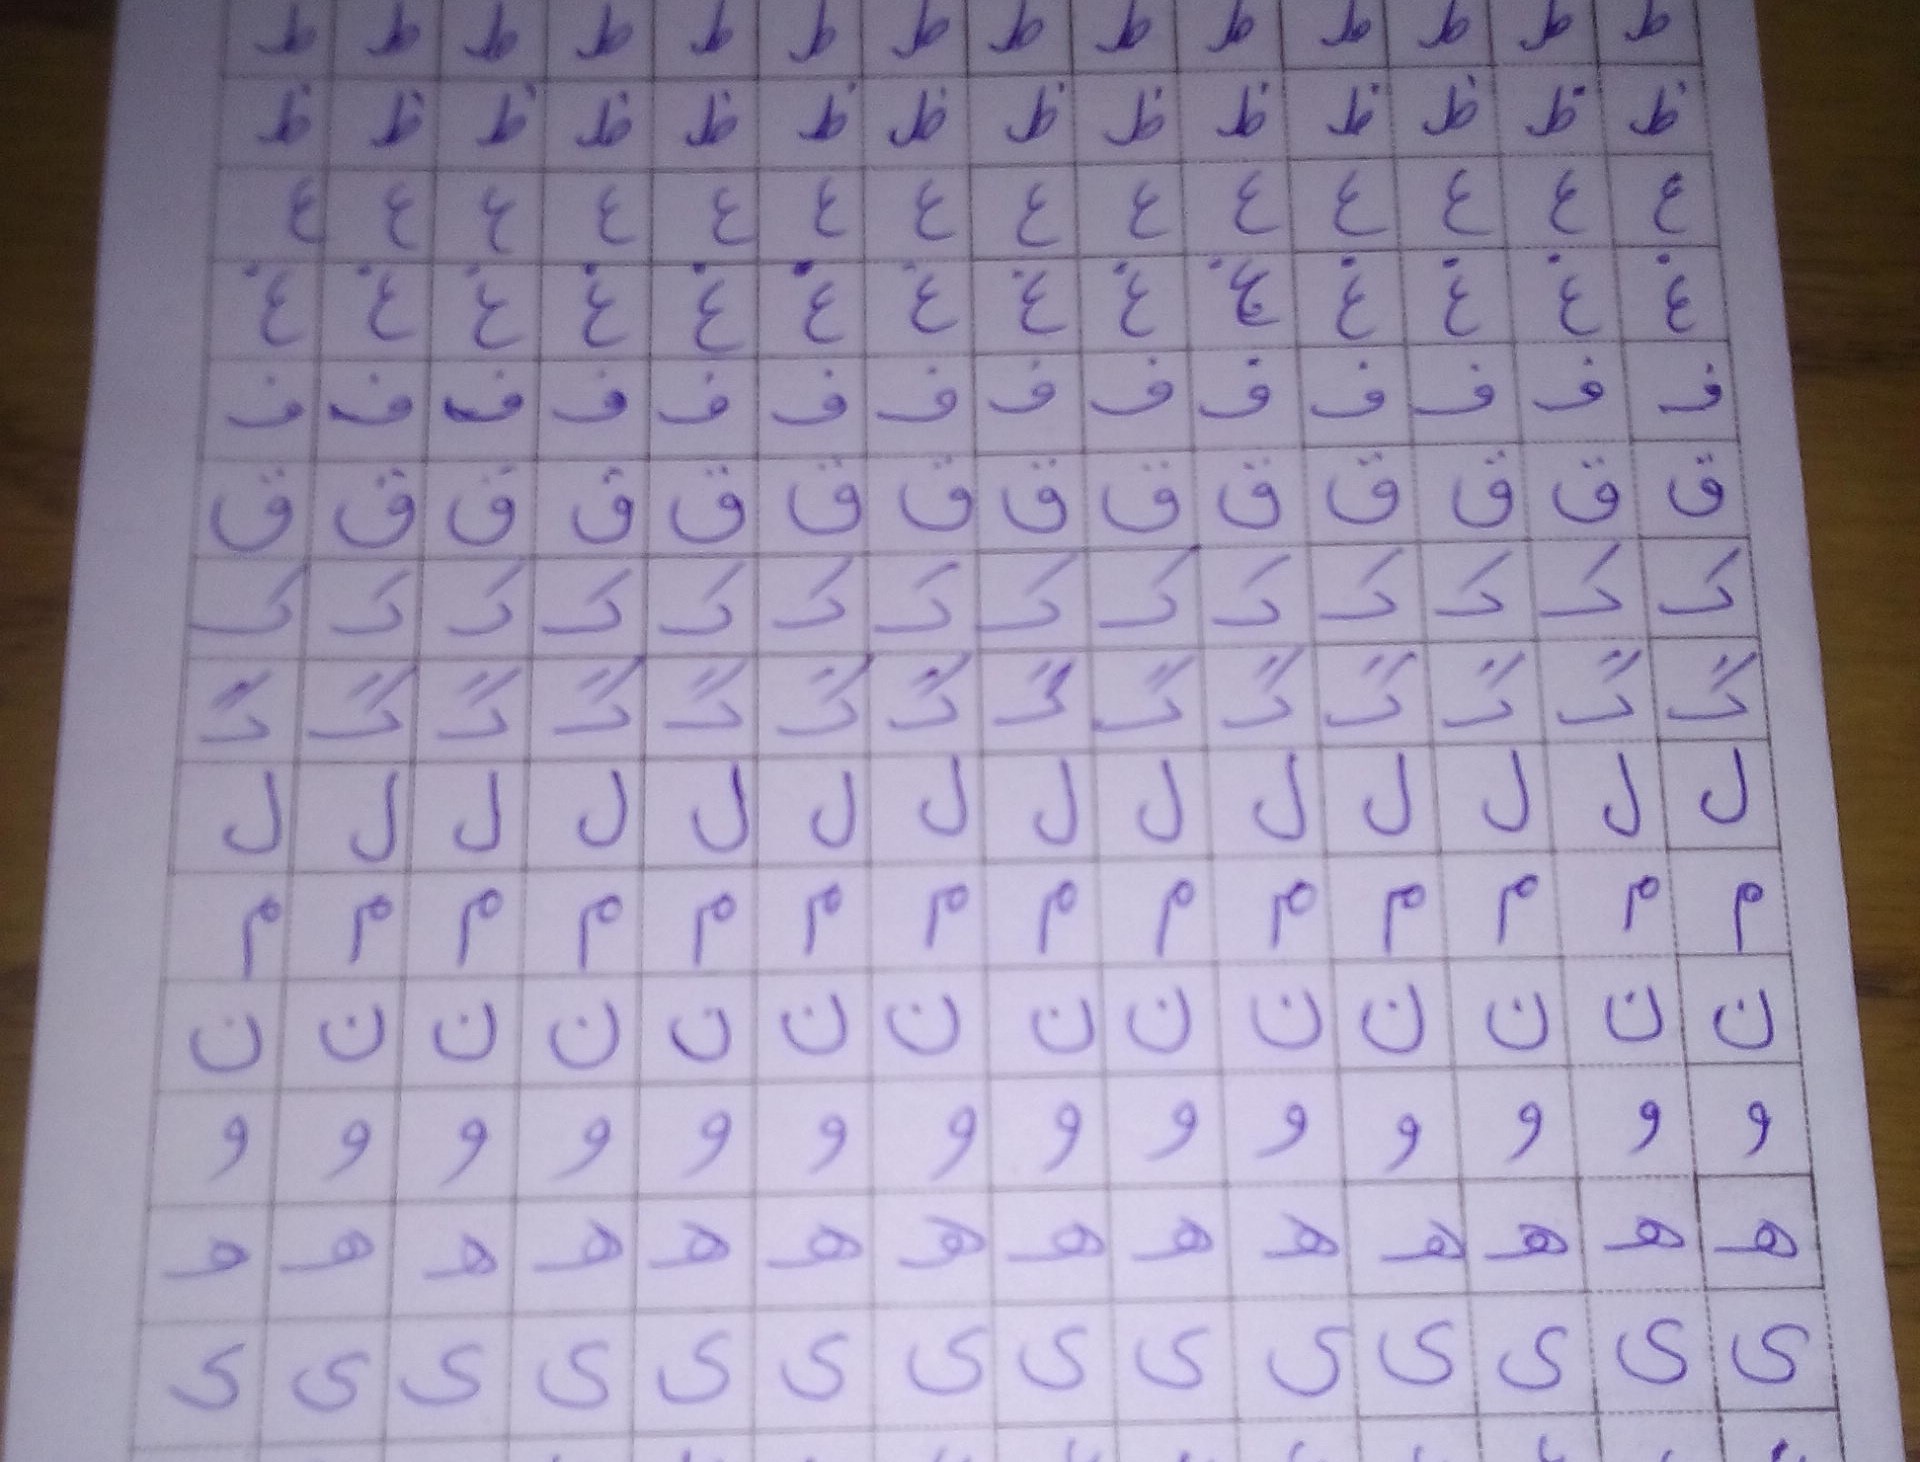 ط ط ط ط ط ط ط ط ط ط ط ط ط ط
ظ ظ ظ ظ ظ ظ ظ ظ ظ ظ ظ ظ ظ ظ
ع ع ع ع ع ع ع ع ع ع ع ع ع ع
غ غ غ غ غ غ غ غ غ غ غ غ غ غ
ف ف ف ف ف ف ف ف ف ف ف ف ف ف
ق ق ق ق ق ق ق ق ق ق ق ق ق ق
ک ک ک ک ک ک ک ک ک ک ک ک ک ک
گ گ گ گ گ گ گ گ گ گ گ گ گ گ
ل ل ل ل ل ل ل ل ل ل ل ل ل ل
م م م م م م م م م م م م م م
ن ن ن ن ن ن ن ن ن ن ن ن ن ن
و و و و و و و و و و و و و و
ه ه ه ه ه ه ه ه ه ه ه ه ه ه
ی ی ی ی ی ی ی ی ی ی ی ی ی ی